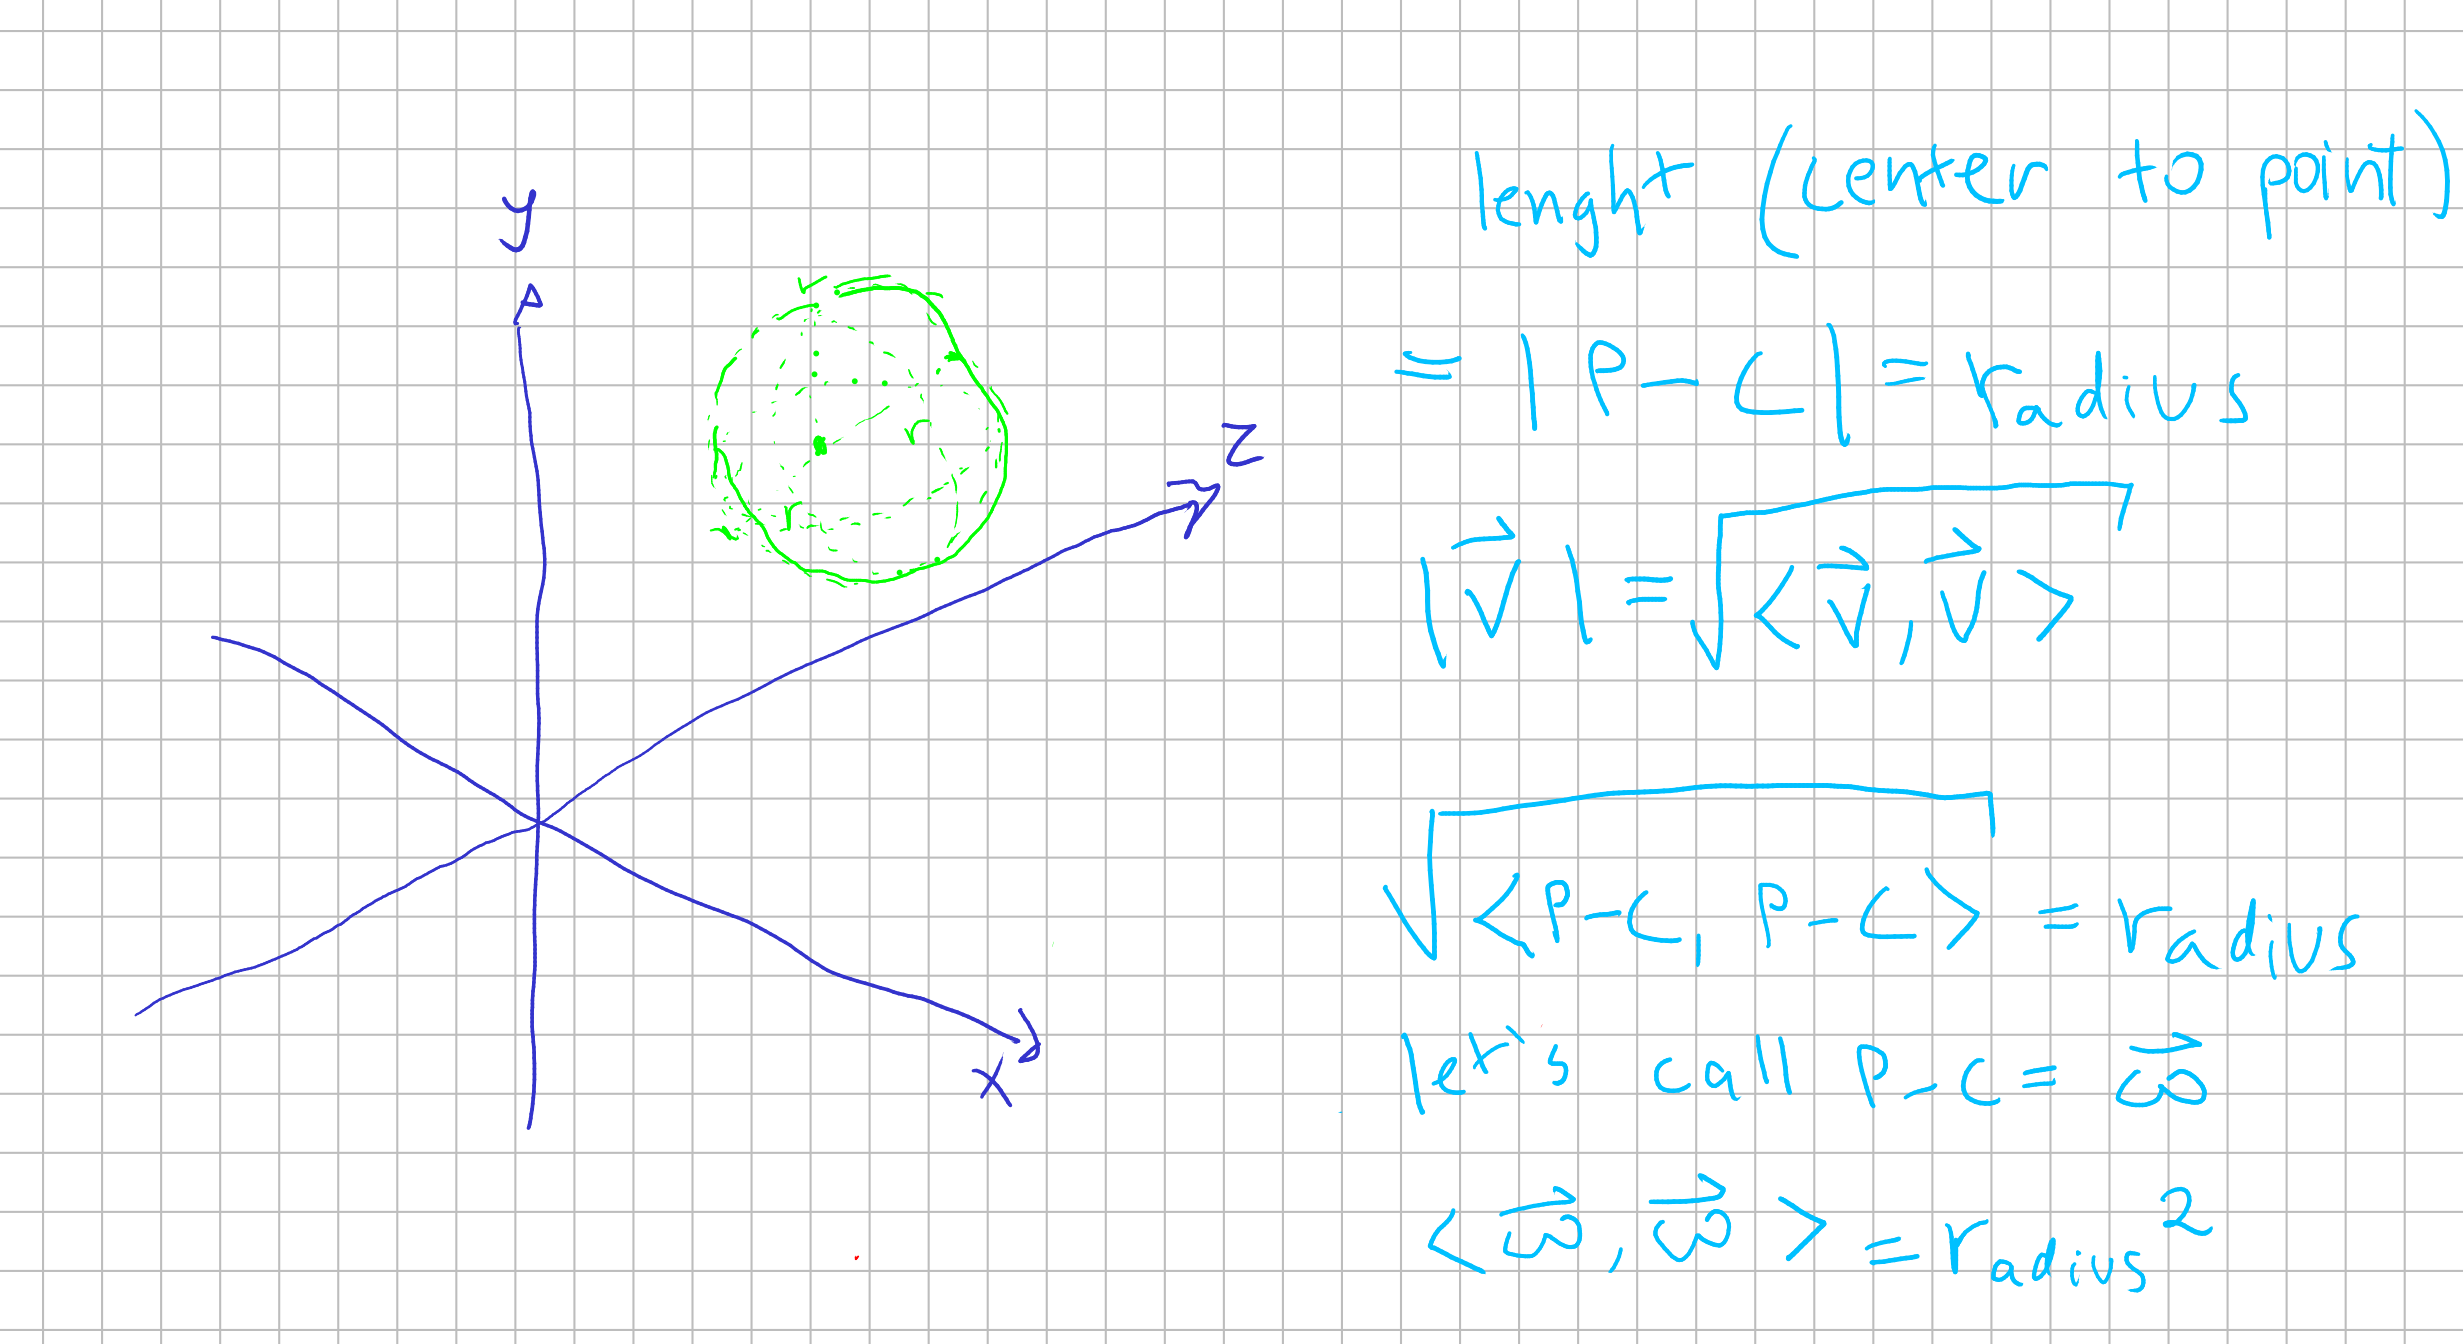 y
r
r
z
x
lenght (center to point)
= |P - C| = radius
|v⃗| = √<v⃗, v⃗>
√<P-C, P-C> = radius
let's call P - C = ω⃗
<ω⃗, ω⃗> = radius²